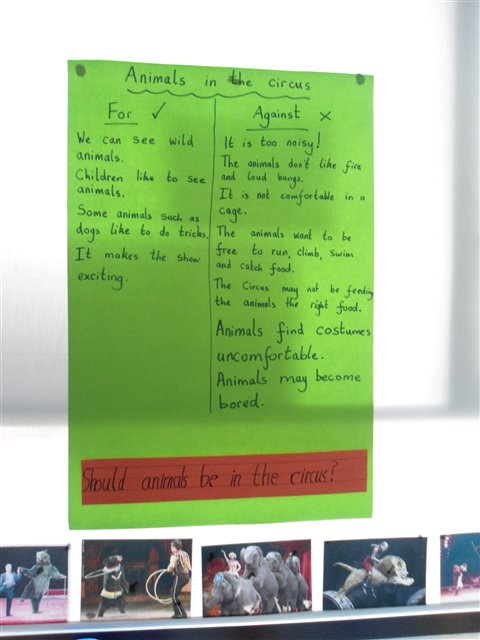 Animals in the circus
For ✓
We can see wild
animals.
Children like to see
animals.
Some animals such as
dogs like to do tricks.
It makes the show
exciting.
Against ✗
It is too noisy!
The animals don't like fire
and loud bangs.
It is not comfortable in a
cage.
The animals want to be
free to run, climb, swim
and catch food.
The Circus may not be feeding
the animals the right food.
Animals find costumes
uncomfortable.
Animals may become
bored.
Should animals be in the circus?